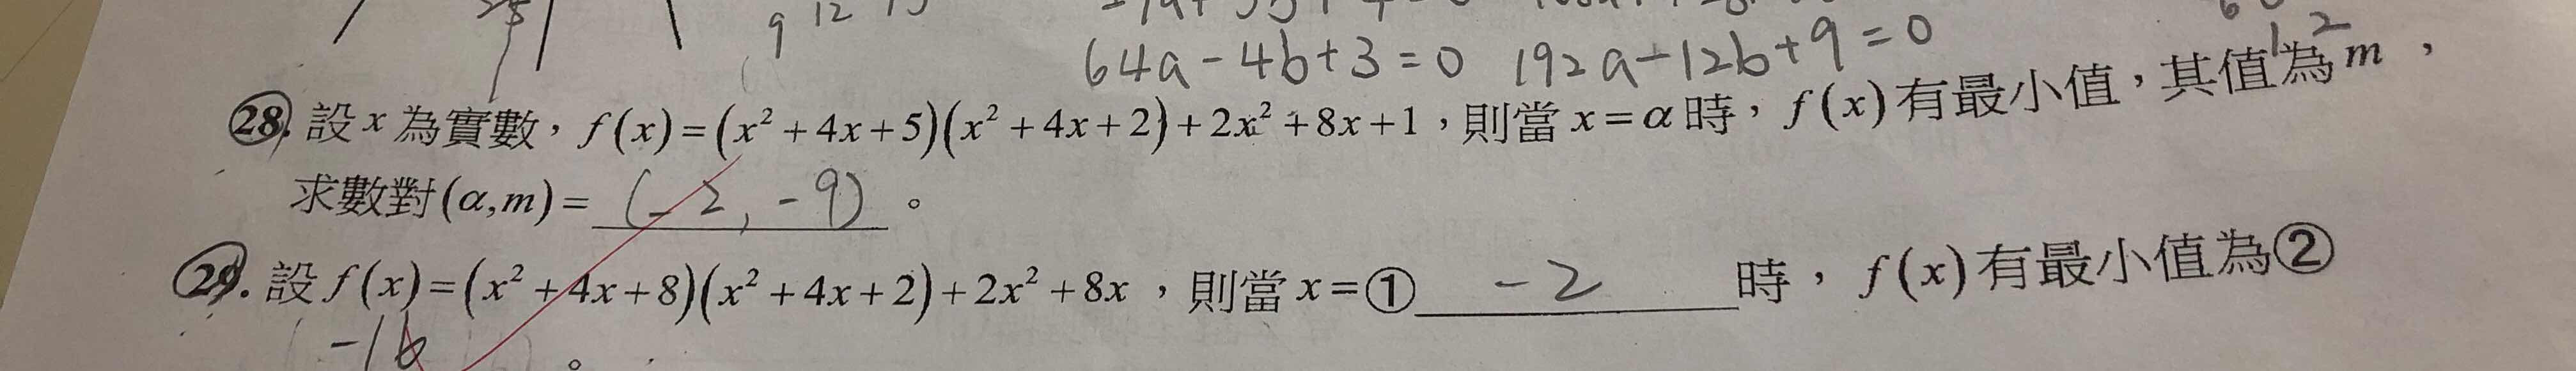 9 12
64a-4b+3=0 192a-12b+9=0
28. 設 x 為實數，f(x)=(x²+4x+5)(x²+4x+2)+2x²+8x+1，則當 x=α 時，f(x) 有最小值，其值為 m，
求數對(α,m)= (-2, -9) 。
29. 設 f(x)=(x²+4x+8)(x²+4x+2)+2x²+8x，則當 x=① -2 時，f(x)有最小值為②
-16 。